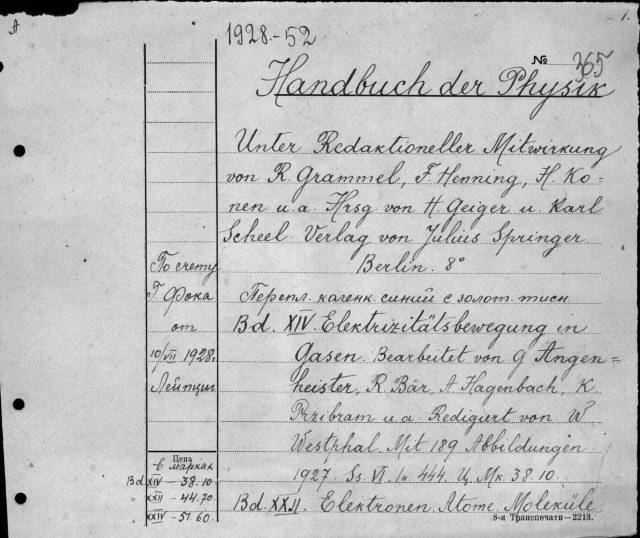 A
1.
1928-52
№ 365
Handbuch der Physik
Unter Redaktioneller Mitwirkung
von R. Grammel, F. Henning, H. Ko=
nen u.a. Hrsg von H Geiger u. Karl
Scheel. Verlag von Julius Springer
По счету
Berlin. 8°
Г. Фока
Перепл. каленк. синий с золот. тисн
от
Bd. XIV. Elektrizitätsbewegung in
10/VII 1928г.
Gasen. Bearbeitet von G Angen=
Лейпциг
heister, R. Bär, A. Hagenbach, K
Przibram u a Redigiert von W
Westphal. Mit 189 Abbildungen
Цена
в марках
1927 Ss. VI 444. Ц. Мк. 38.10.
Bd. XIV - 38.10
" XXII - 44.70.
Bd. XXII. Elektronen. Atome. Moleküle
" XXIV - 51.60.
8-я Транспечати—2213.